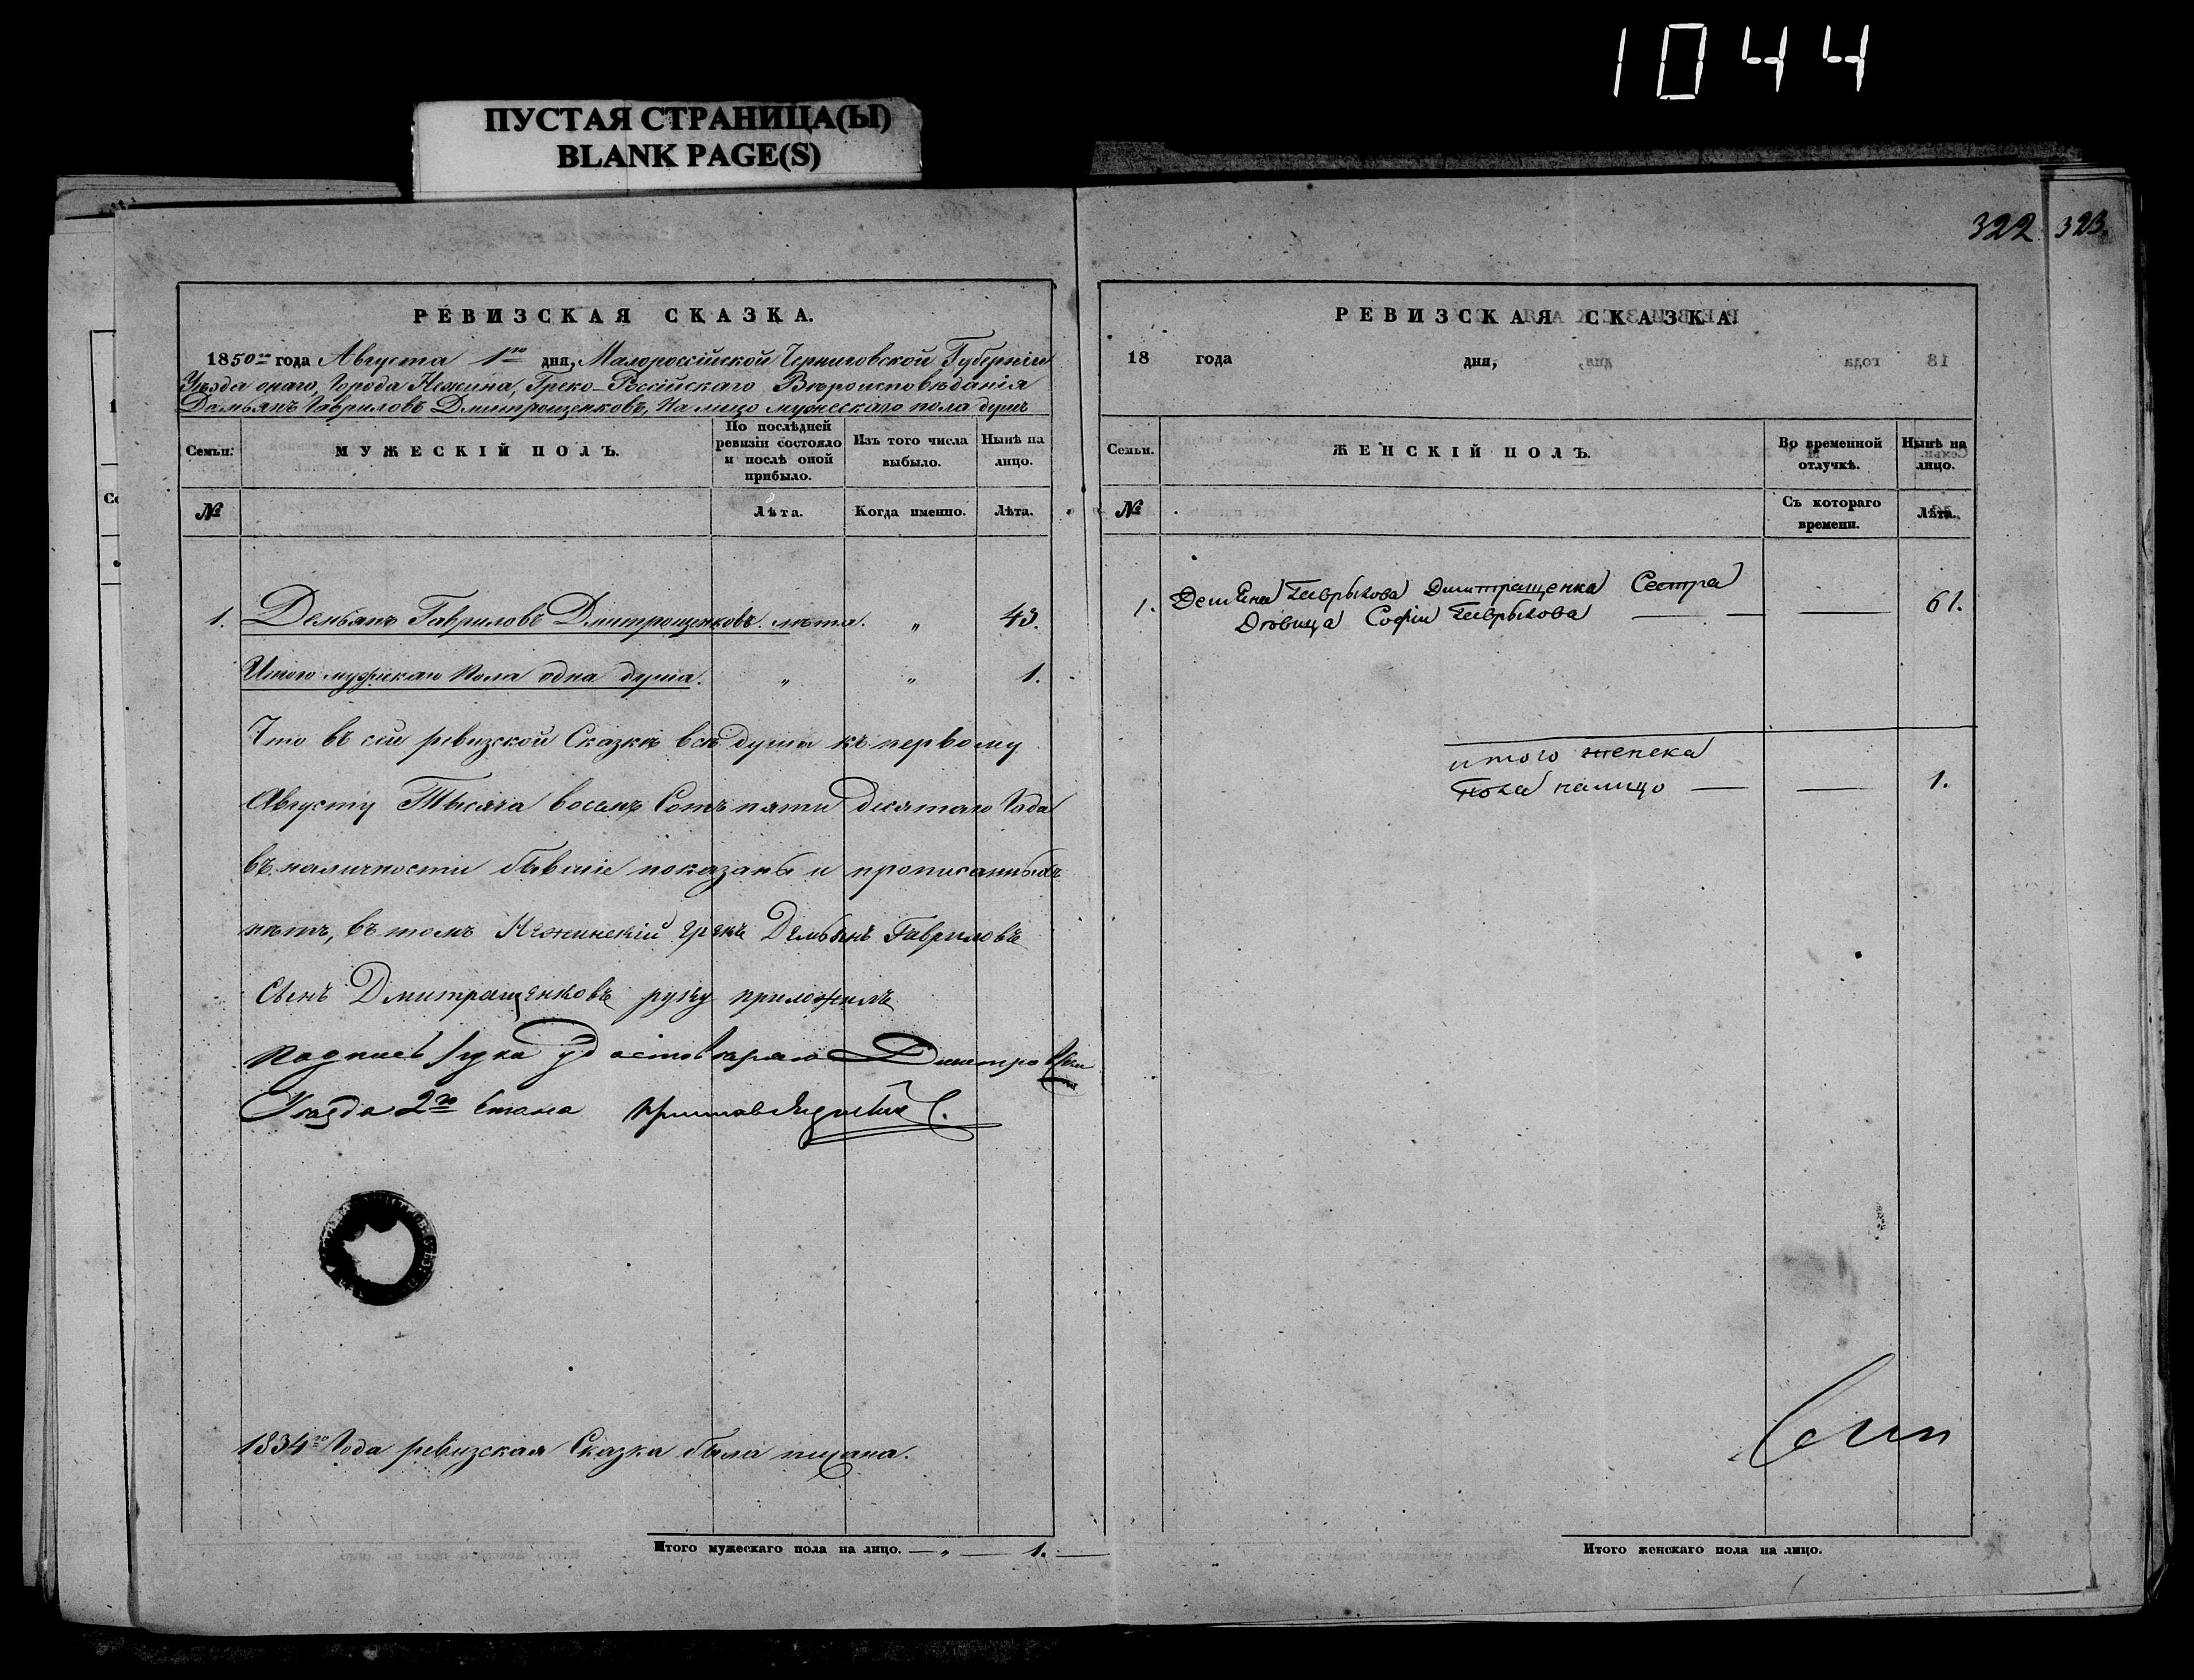 1044
ПУСТАЯ СТРАНИЦА(Ы)
BLANK PAGE(S)
322 323.
РЕВИЗСКАЯ СКАЗКА.
1850го года Августа 1го дня, Малороссійской Черниговской Губерніи
Уезда онаго, Города Нежина, Греко-Россійскаго Вѣроисповѣданія
Демьянъ Гавриловъ Дмитрощенковъ, На лицо мужескаго пола душъ
Семьи.
МУЖЕСКІЙ ПОЛЪ.
По послѣдней ревизіи состояло и послѣ оной прибыло.
Изъ того числа выбыло.
Нынѣ на лицо.
№
Лѣта.
Когда именно.
Лѣта.
1. Демьянъ Гавриловъ Дмитрощенковъ. лѣта. " 43.
Итого мужескаго Пола одна душа. " " 1.
Что въ сей ревизской Сказкѣ всѣ души къ первому
Августу Тысяча восемь Сотъ пяти десятаго Года
въ наличности бывшіе показаны и прописанныхъ
нѣтъ, въ томъ Нѣжинскій грекъ Демьянъ Гавриловъ
Сынъ Дмитращенковъ руку приложилъ
Уезда 2го Стана Приставъ
1834го Года ревизская Сказка была писана.
Итого мужескаго пола на лицо. — " — 1. —
РЕВИЗСКАЯ СКАЗКА.
18 года дня,
Семьи.
ЖЕНСКІЙ ПОЛЪ.
Во временной отлучкѣ.
Нынѣ на лицо.
№
Съ котораго времени.
Лѣта.
1. Демьяна Гаврылова Дмитращенка Сестра
Дѣвица Софія Гаврылова — — 61.
итого женска
пола налицо — — 1.
Итого женскаго пола на лицо.